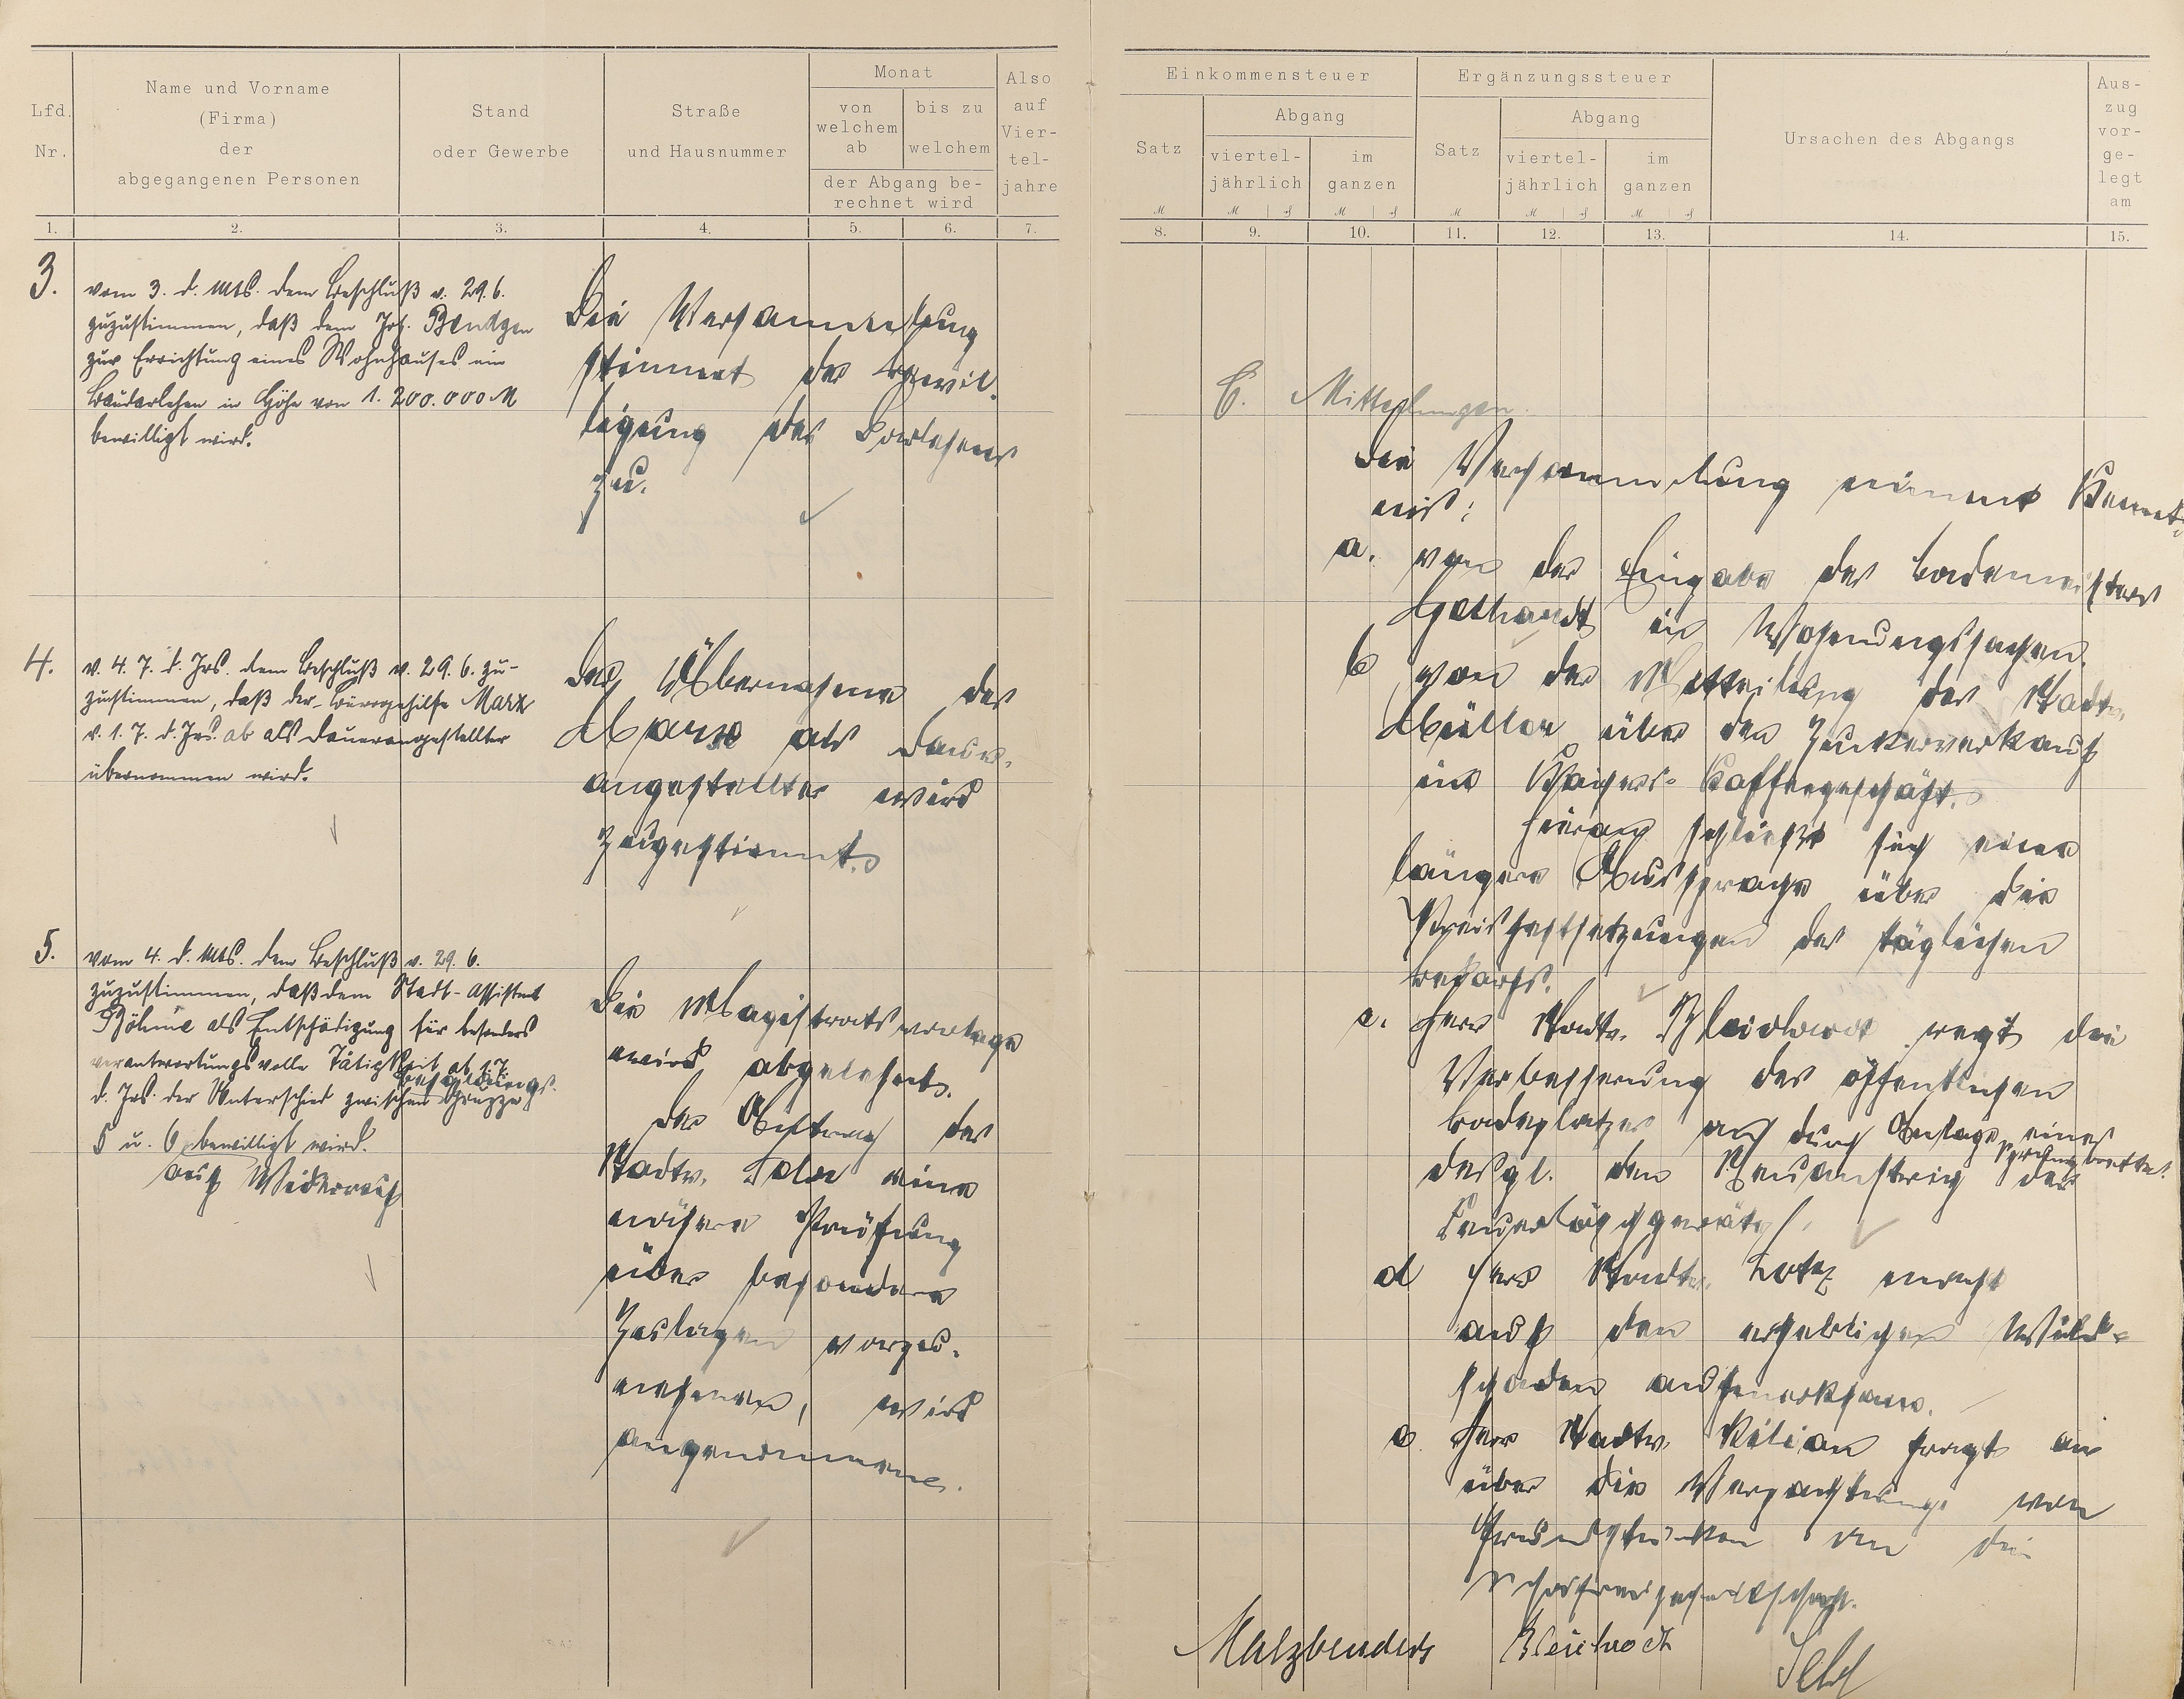 Lfd. Nr.
Name und Vorname
(Firma)
der
abgegangenen Personen
Stand
oder Gewerbe
Straße
und Hausnummer
Monat
von welchem ab
bis zu welchem
der Abgang be-
rechnet wird
Also auf Vier-tel-jahre
1. 2. 3. 4. 5. 6. 7.
3.
vom 3. d. Mts. dem Beschluß v. 29.6.
zuzustimmen, daß dem Joh. Bendgen
zur Errichtung eines Wohnhauses ein
Baudarlehen in Höhe von 1.200.000 M
bewilligt wird.
Die Versammlung
stimmt der Bewil-
ligung des Darlehens
zu.
4.
v. 4.7. d. Jrs. dem Beschluß v. 29.6. zu-
zustimmen, daß der Bürogehilfe Marx
v. 1.7. d. Jrs. ab als Dauerangestellter
übernommen wird.
Der Übernahme des
Marx als Dauer-
angestellter wird
zugestimmt.
5.
vom 4. d. Mts. dem Beschluß v. 29.6.
zuzustimmen, daß dem Stadt-Assistent
Böhme als Entschädigung für besonders
verantwortungsvolle Tätigkeit ab 1.7.
d. Jrs. der Unterschied zwischen Besoldungs-
Gruppe
5 u. 6 bewilligt wird.
auf Widerruf
Die Magistratsvorlage
wird abgelehnt.
Der Antrag des
Stadtv. eine
nähere Prüfung
über besondere
Zulagen vorzu-
nehmen, wird
angenommen.
Einkommensteuer
Satz
Abgang
viertel-
jährlich
im
ganzen
Ergänzungssteuer
Satz
Abgang
viertel-
jährlich
im
ganzen
Ursachen des Abgangs
Aus-
zug
vor-
ge-
legt
am
M M ₰ M ₰ M M ₰ M ₰
8. 9. 10. 11. 12. 13. 14. 15.
C. Mitteilungen.
Die Versammlung nimmt Kennt-
nis:
a. von der Eingabe des Bademeisters
Gothardt in Wohnungssachen.
b. von der Mitteilung des Stadtv.
Müller über den Zuckerverkauf
im Kaisers-Kaffeegeschäft.
Hieran schließt sich eine
längere Aussprache über die
Preisfestsetzungen des täglichen
Bedarfs.
c. Herr Stadtv. regt die
Verbesserung des öffentlichen
Badeplatzes an durch Anlage eines
Sprungbrettes.
desgl. den Neuanstrich der
Feuerlöschgeräte.
d Herr Stadtv. Lotz macht
auf den erheblichen Wild-
schaden aufmerksam.
e. Herr Stadtv. Kilian fragt an
über die Verpachtung von
Grundstücken an die
Malzbenders